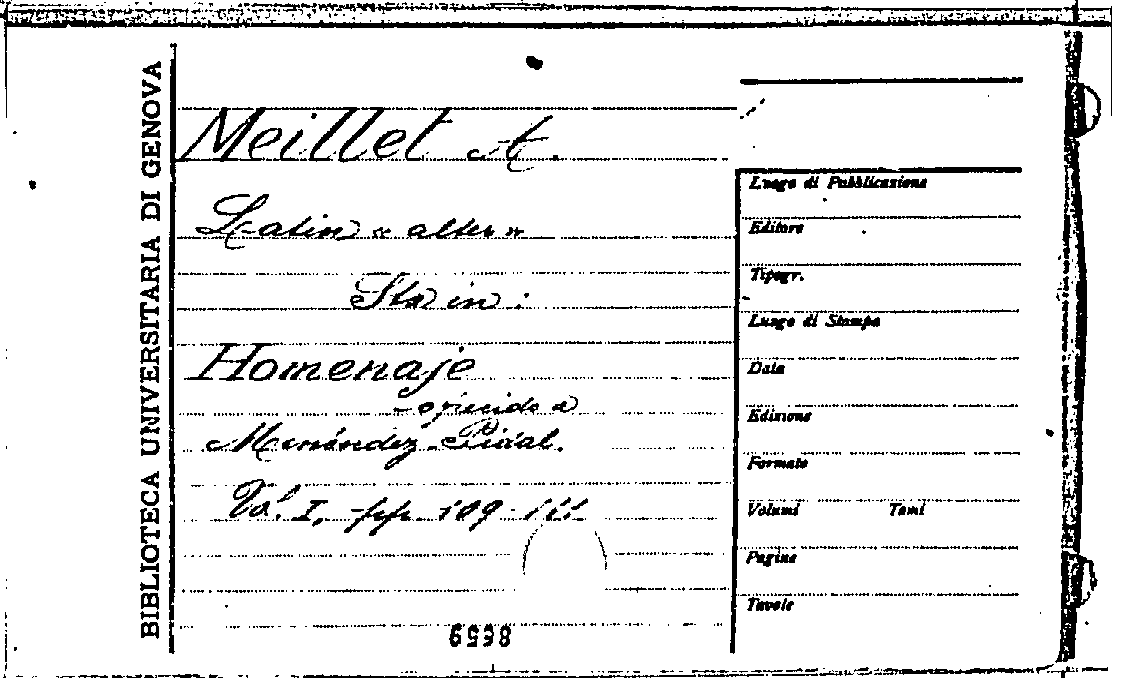 BIBLIOTECA UNIVERSITARIA DI GENOVA
Meillet A.
Latin « alter »
Sta in:
Homenaje
ofrecido a
Menéndez Pidal.
Vol. I, pp. 109-111
8659
Luogo di Pubblicazione
Editore
Tipogr.
Luogo di Stampa
Data
Edizione
Formato
Volumi Tomi
Pagine
Tavole